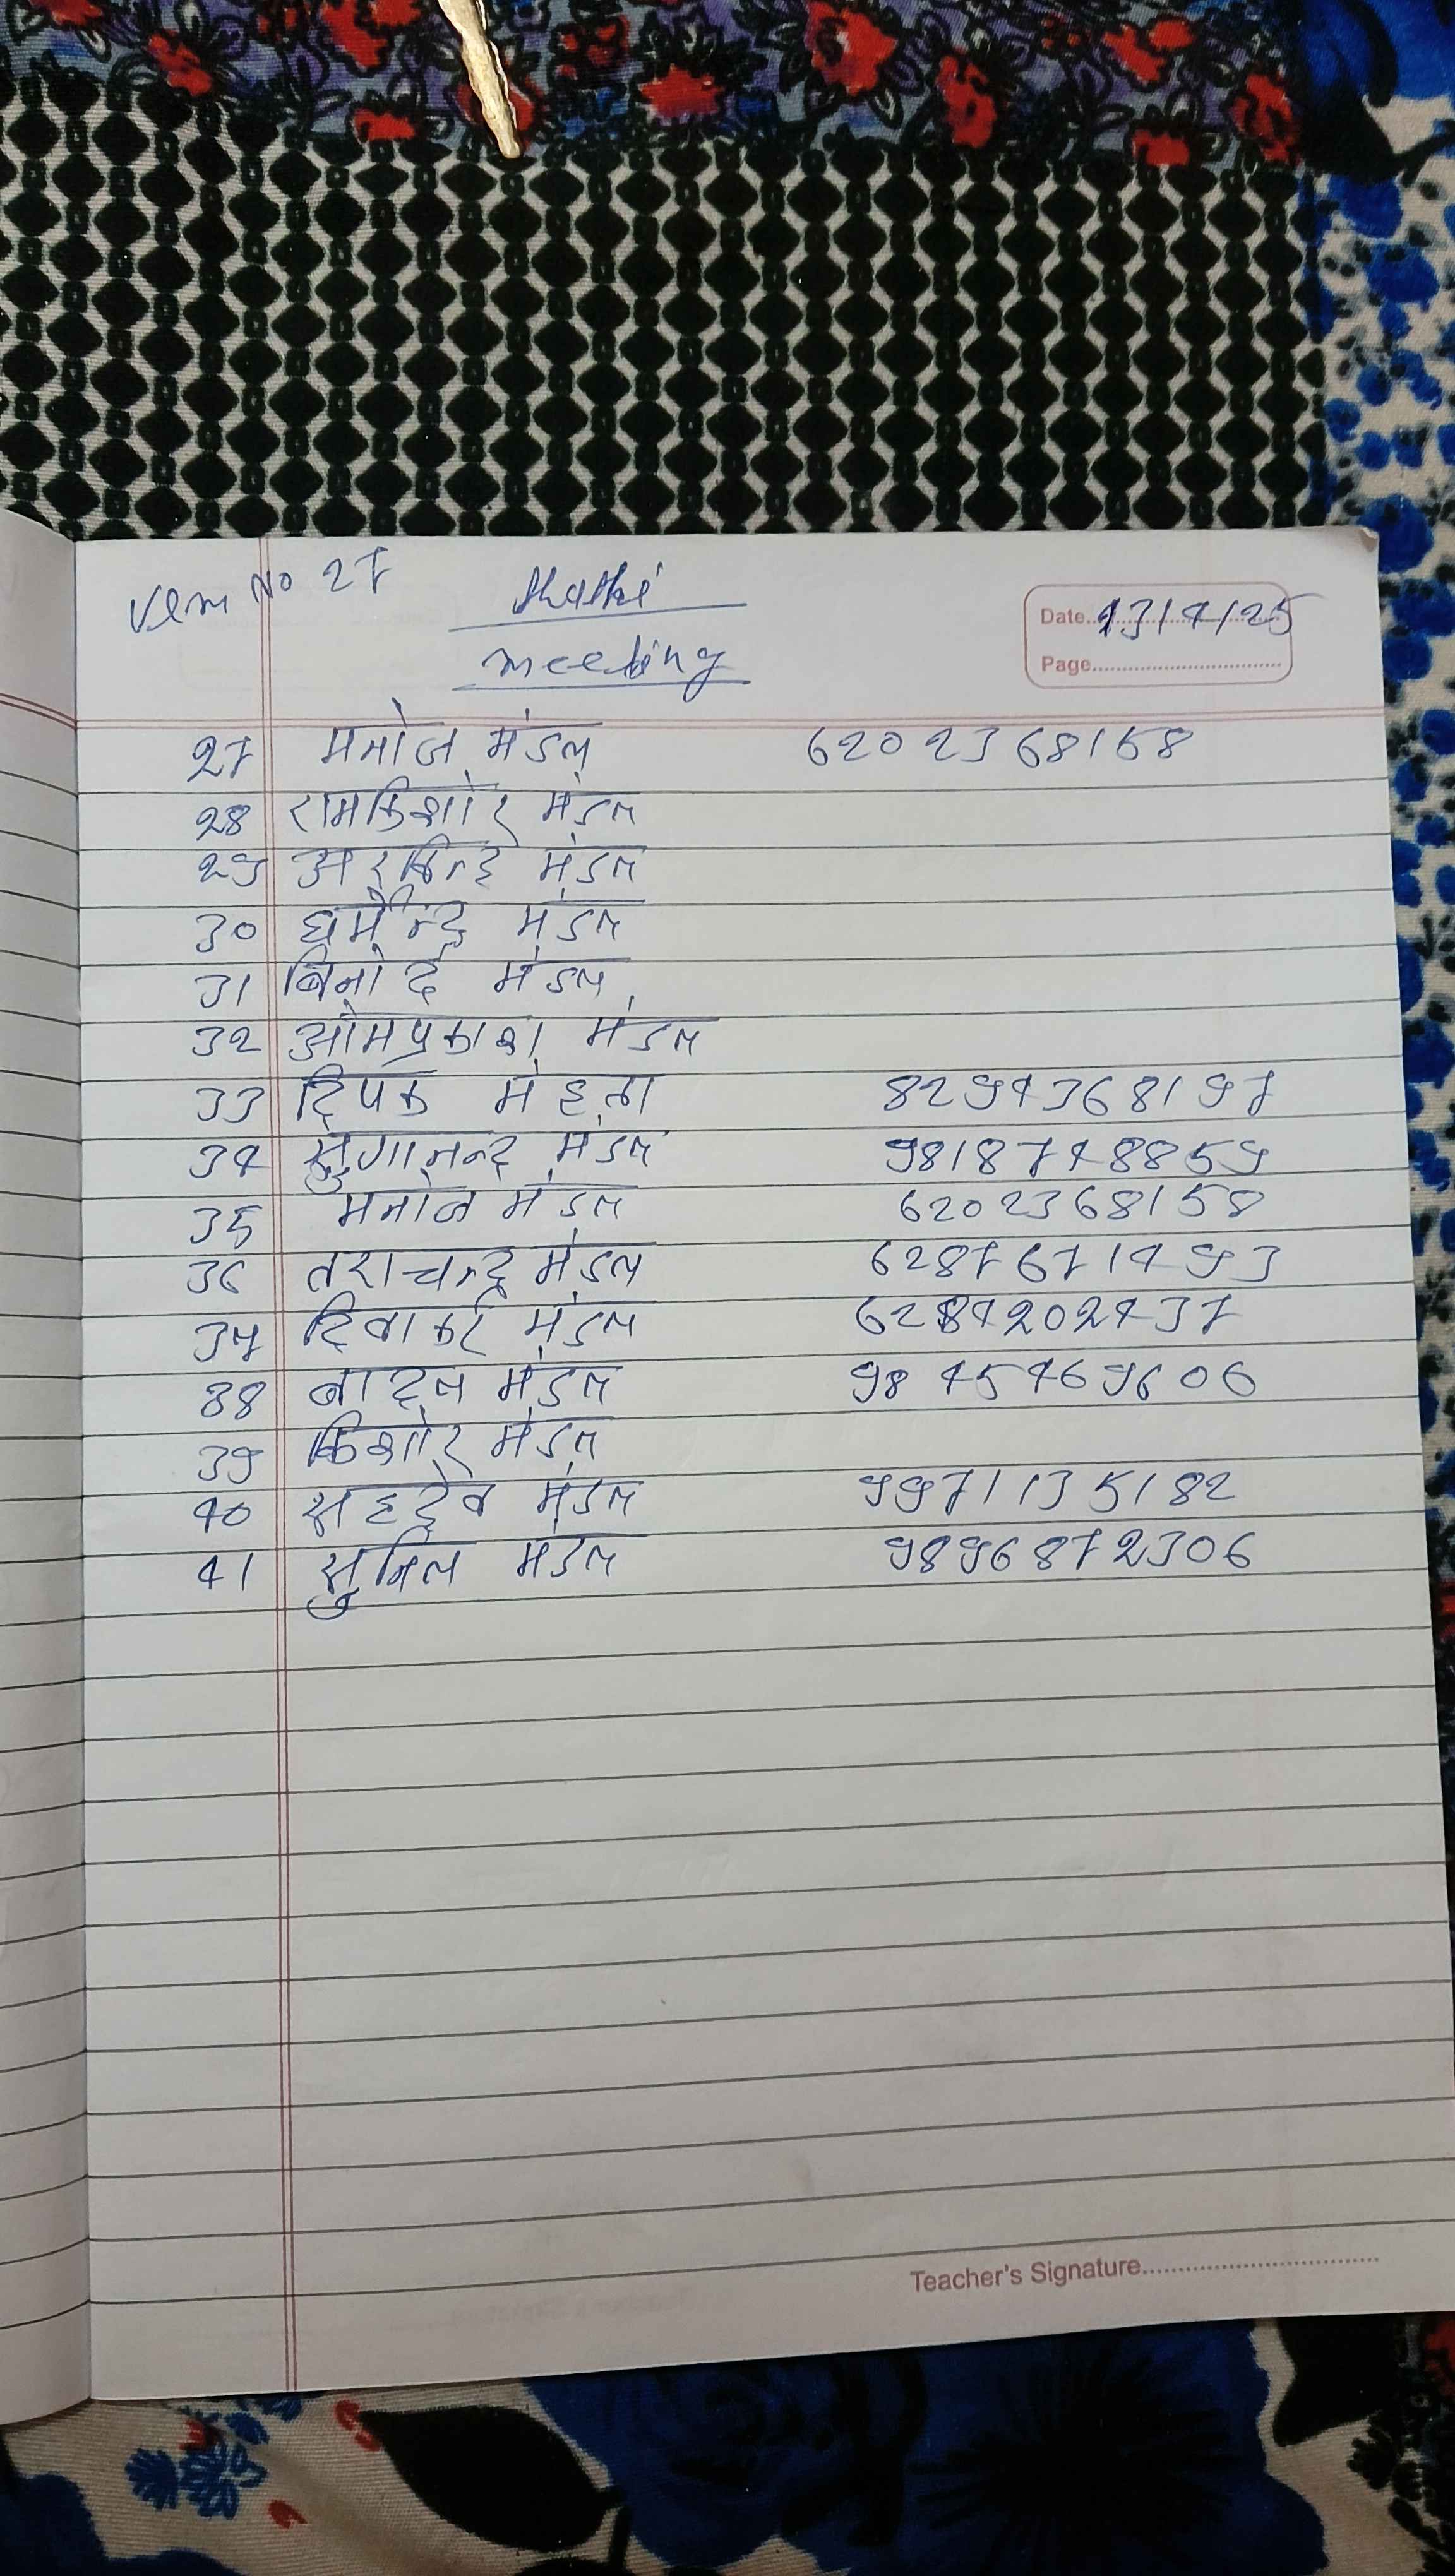 No 27
meeting
Date 13/4/25
Page
27 मनोज मंडल 6202368158
28 रामकिशोर मंडल
29 अरबिन्द मंडल
30 धर्मेन्द्र मंडल
31 बिनोद मंडल
32 ओमप्रकाश मंडल
33 दिपक मेहता 8294368197
34 मंडल 9818748859
35 मनोज मंडल 6202368158
36 तराचन्द्र मंडल 6287671493
37 दिवाकर मंडल
38 बादल मंडल 9845469606
39 किशोर मंडल
40 सहदेव मंडल 9971135182
41 सुनिल मंडल 9896872306
Teacher's Signature